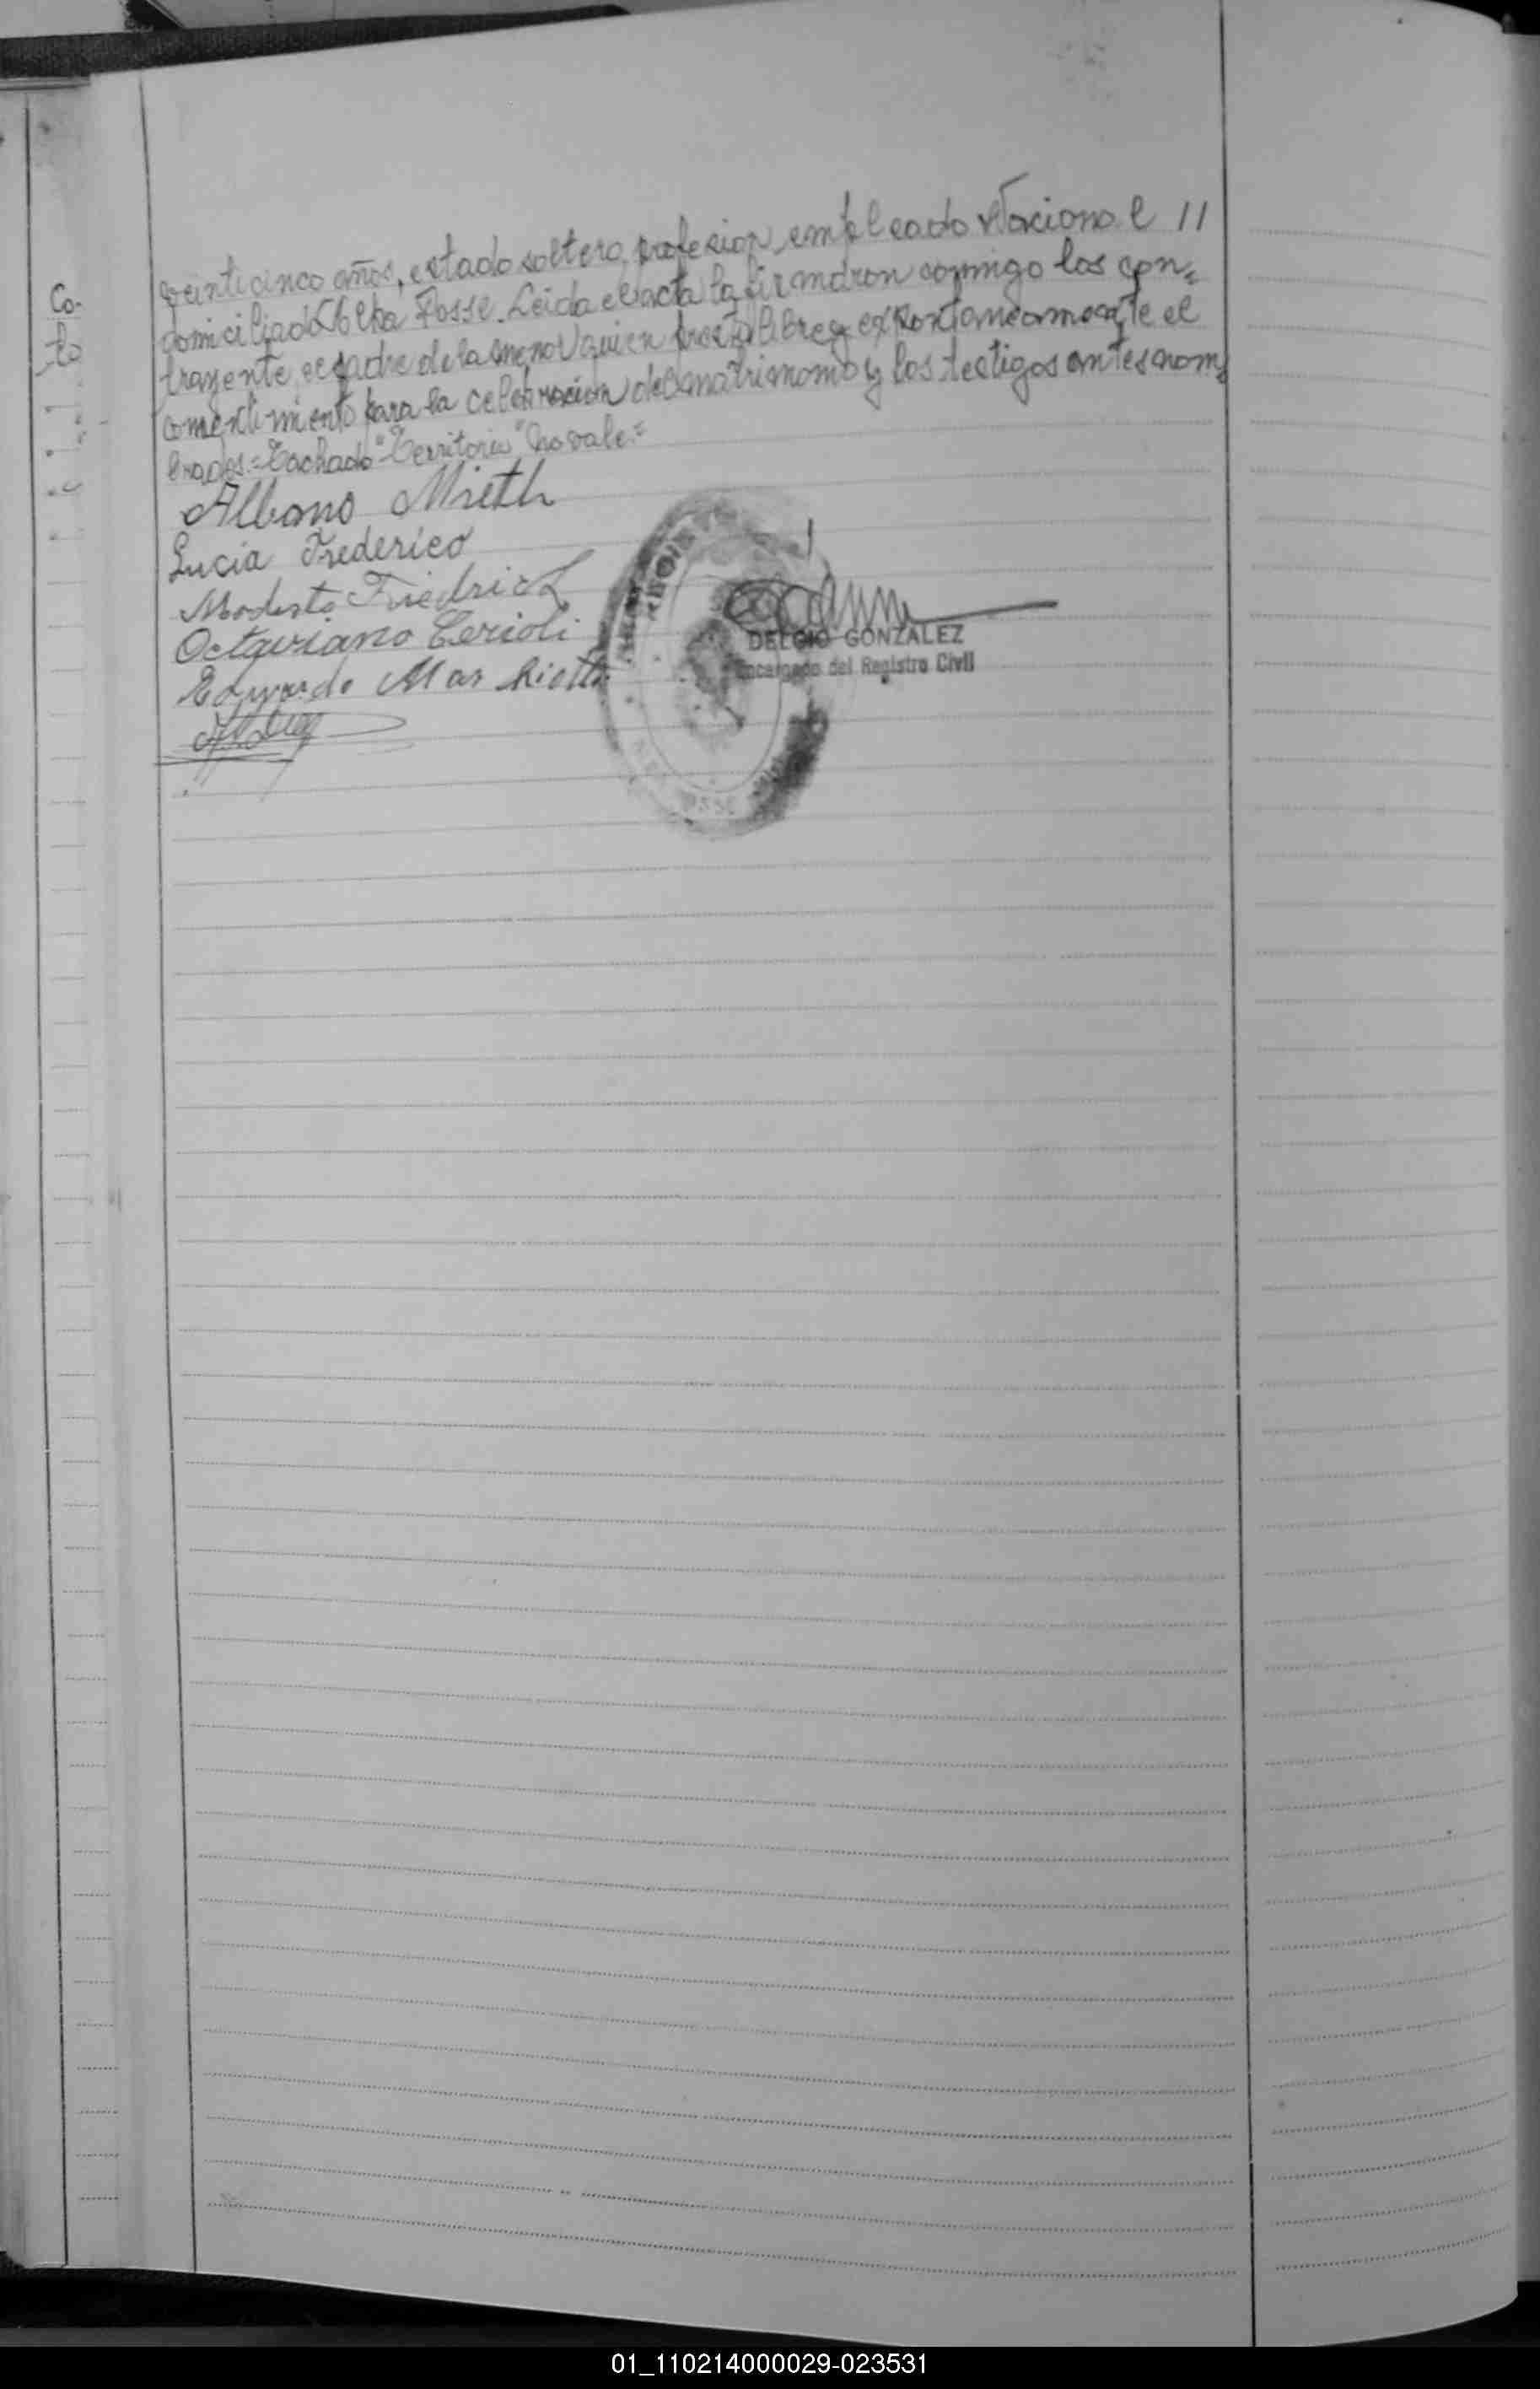 Co-
to
veinticinco años, estado soltero, profesion, empleado Nacional //
domiciliado Alba Posse. Leida el acta la firmaron conmigo los con-
trayente, el padre de la menor quien presta libre y expontaneamente el
consentimiento para la celebración del matrimonio y los testigos antes nom-
brados.= Tachado "Territorio" No vale.=
Albano Mieth
Lucia Frederico
Modesto Friedrich
Octaviano Cerioli
Eduardo Mas
DELCIO GONZALEZ
Encargado del Registro Civil
01_110214000029-023531